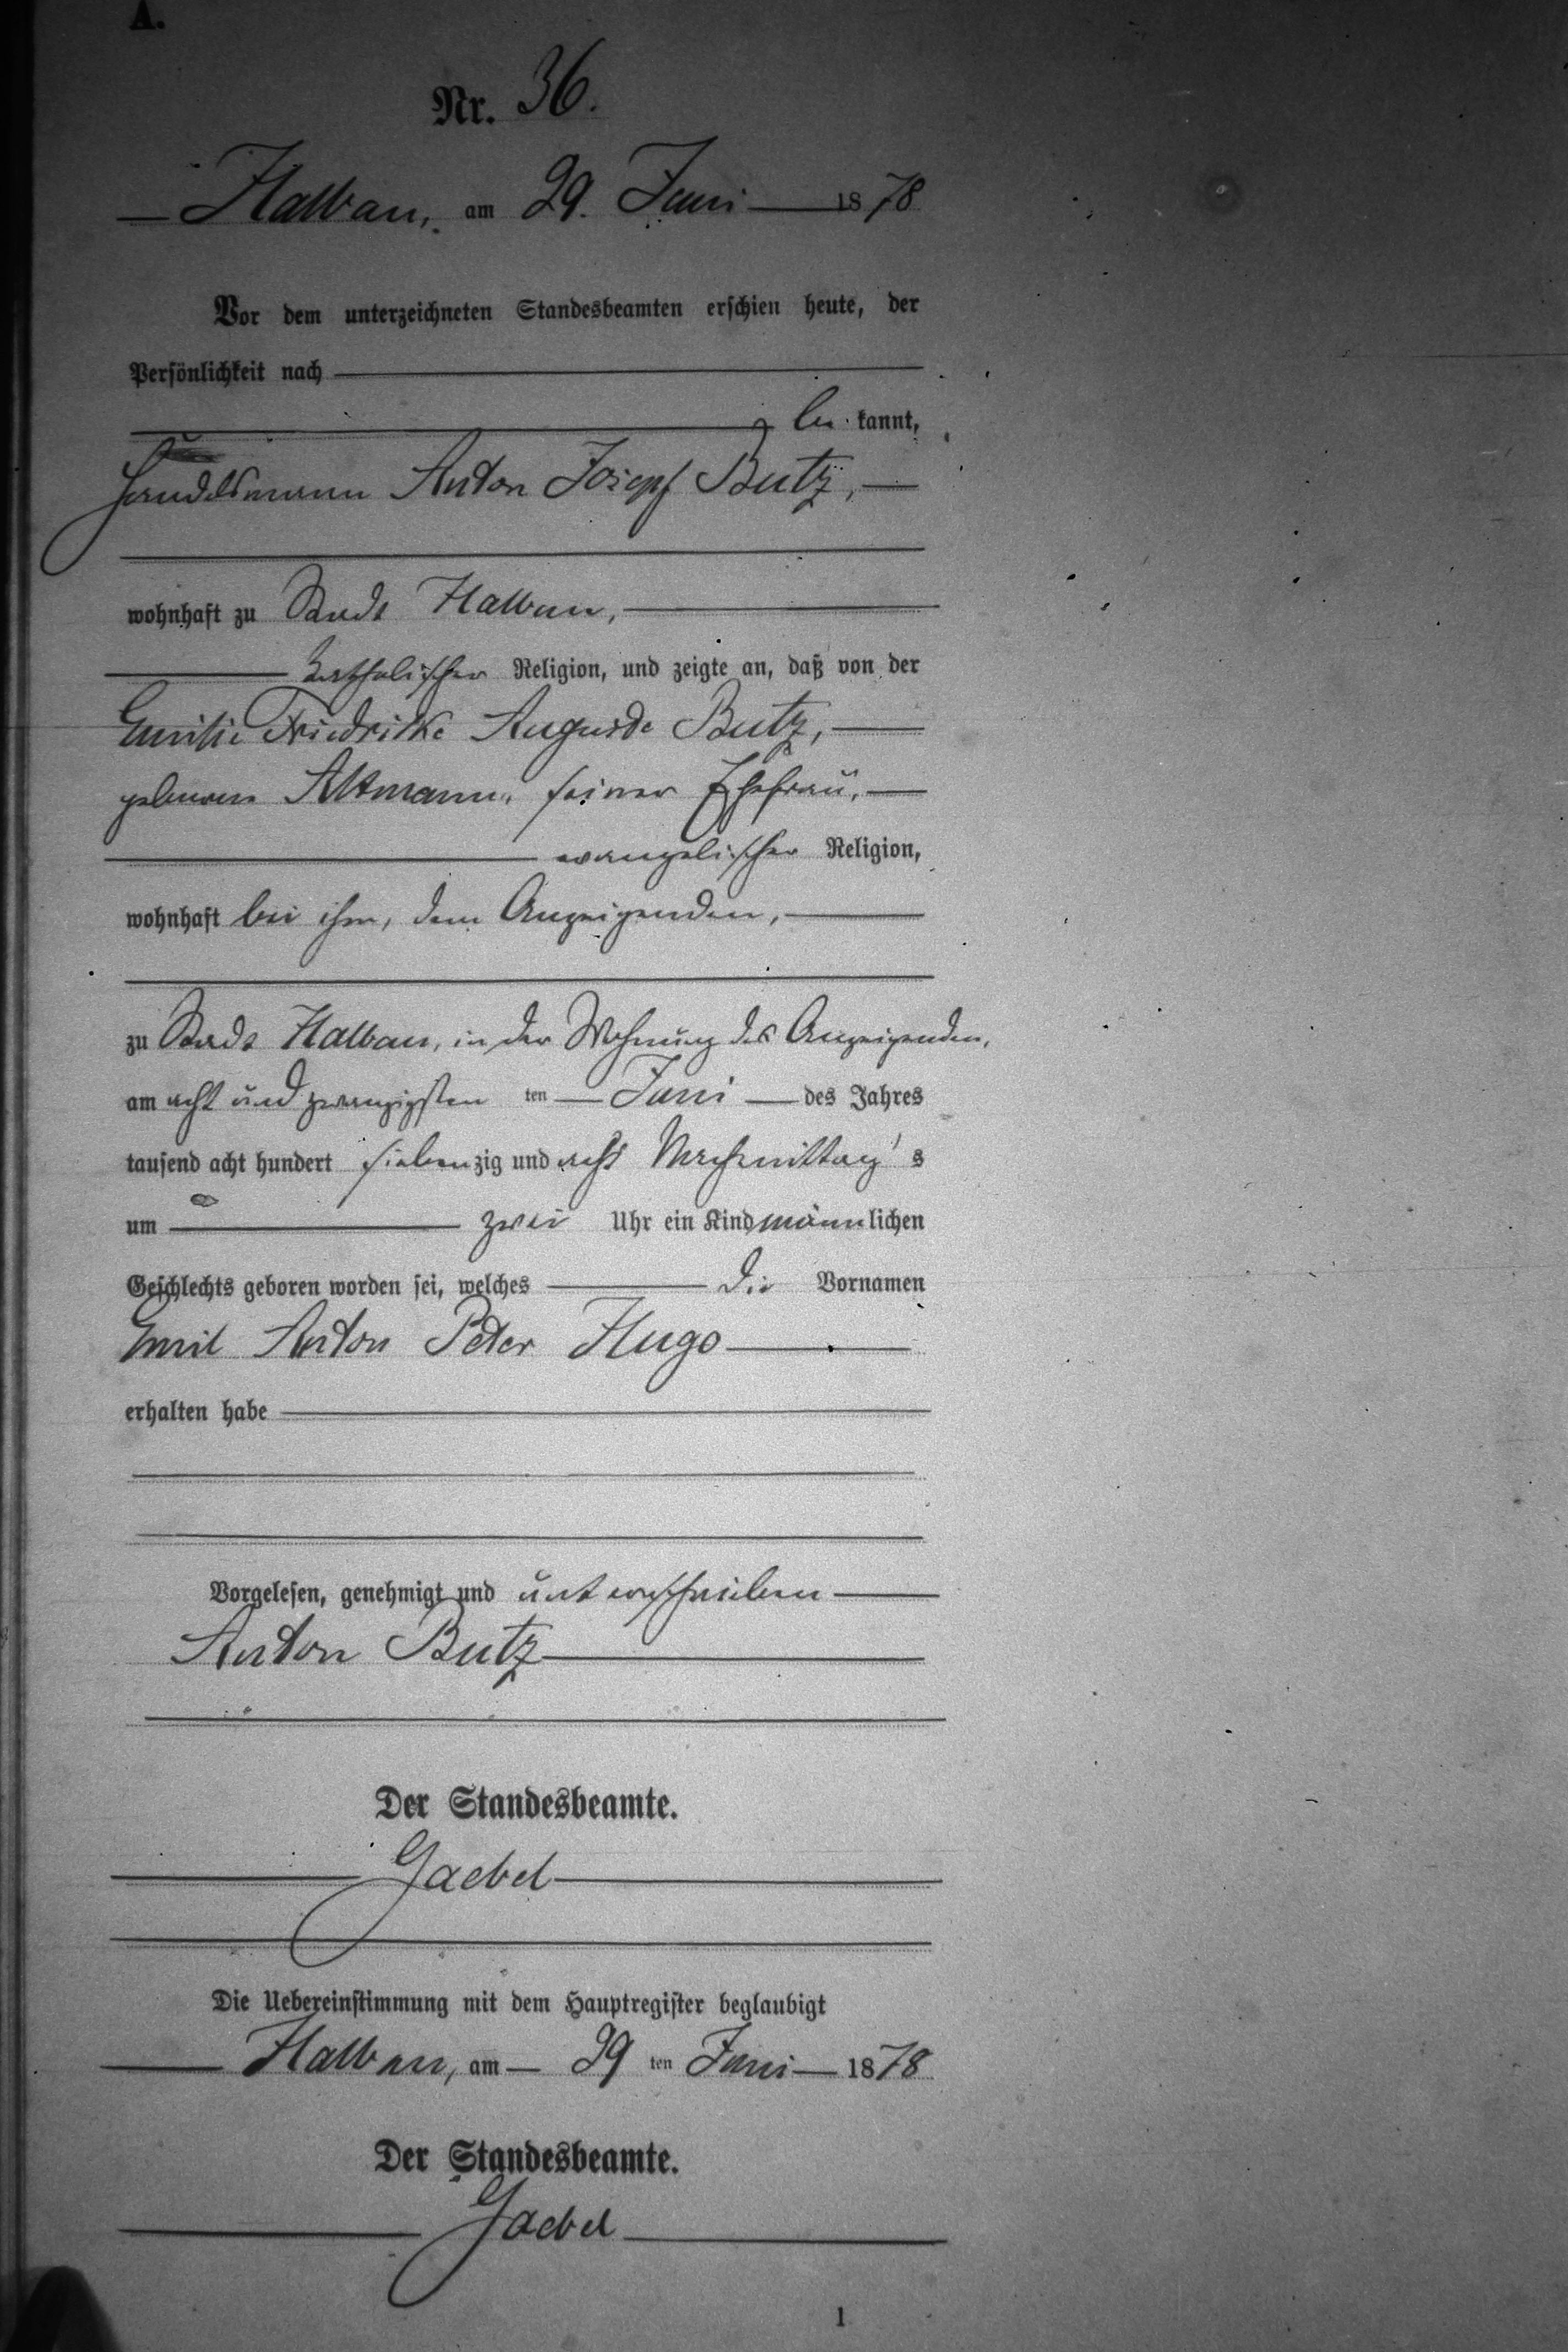 A.
Nr. 36.
Halbau, am 29. Juni 1878
Vor dem unterzeichneten Standesbeamten erschien heute, der
Persönlichkeit nach
be kannt,
Handelsmann Anton Joseph Butz,
wohnhaft zu Stadt Halbau,
katholischer Religion, und zeigte an, daß von der
Emilie Friedricke Auguste Butz,
geborene Altmann, seiner Ehefrau,
evangelischer Religion,
wohnhaft bei ihm, dem Anzeigenden,
zu Stadt Halbau, in der Wohnung des Anzeigenden,
am acht und zwanzigsten ten Juni des Jahres
tausend acht hundert siebenzig und acht Nachmittag's
um zwei Uhr ein Kind männlichen
Geschlechts geboren worden sei, welches die Vornamen
Emil Anton Peter Hugo
erhalten habe
Vorgelesen, genehmigt und unterschrieben
Anton Butz
Der Standesbeamte.
Gaebel
Die Uebereinstimmung mit dem Hauptregister beglaubigt
Halbau, am 29 ten Juni 1878
Der Standesbeamte.
Gaebel
1